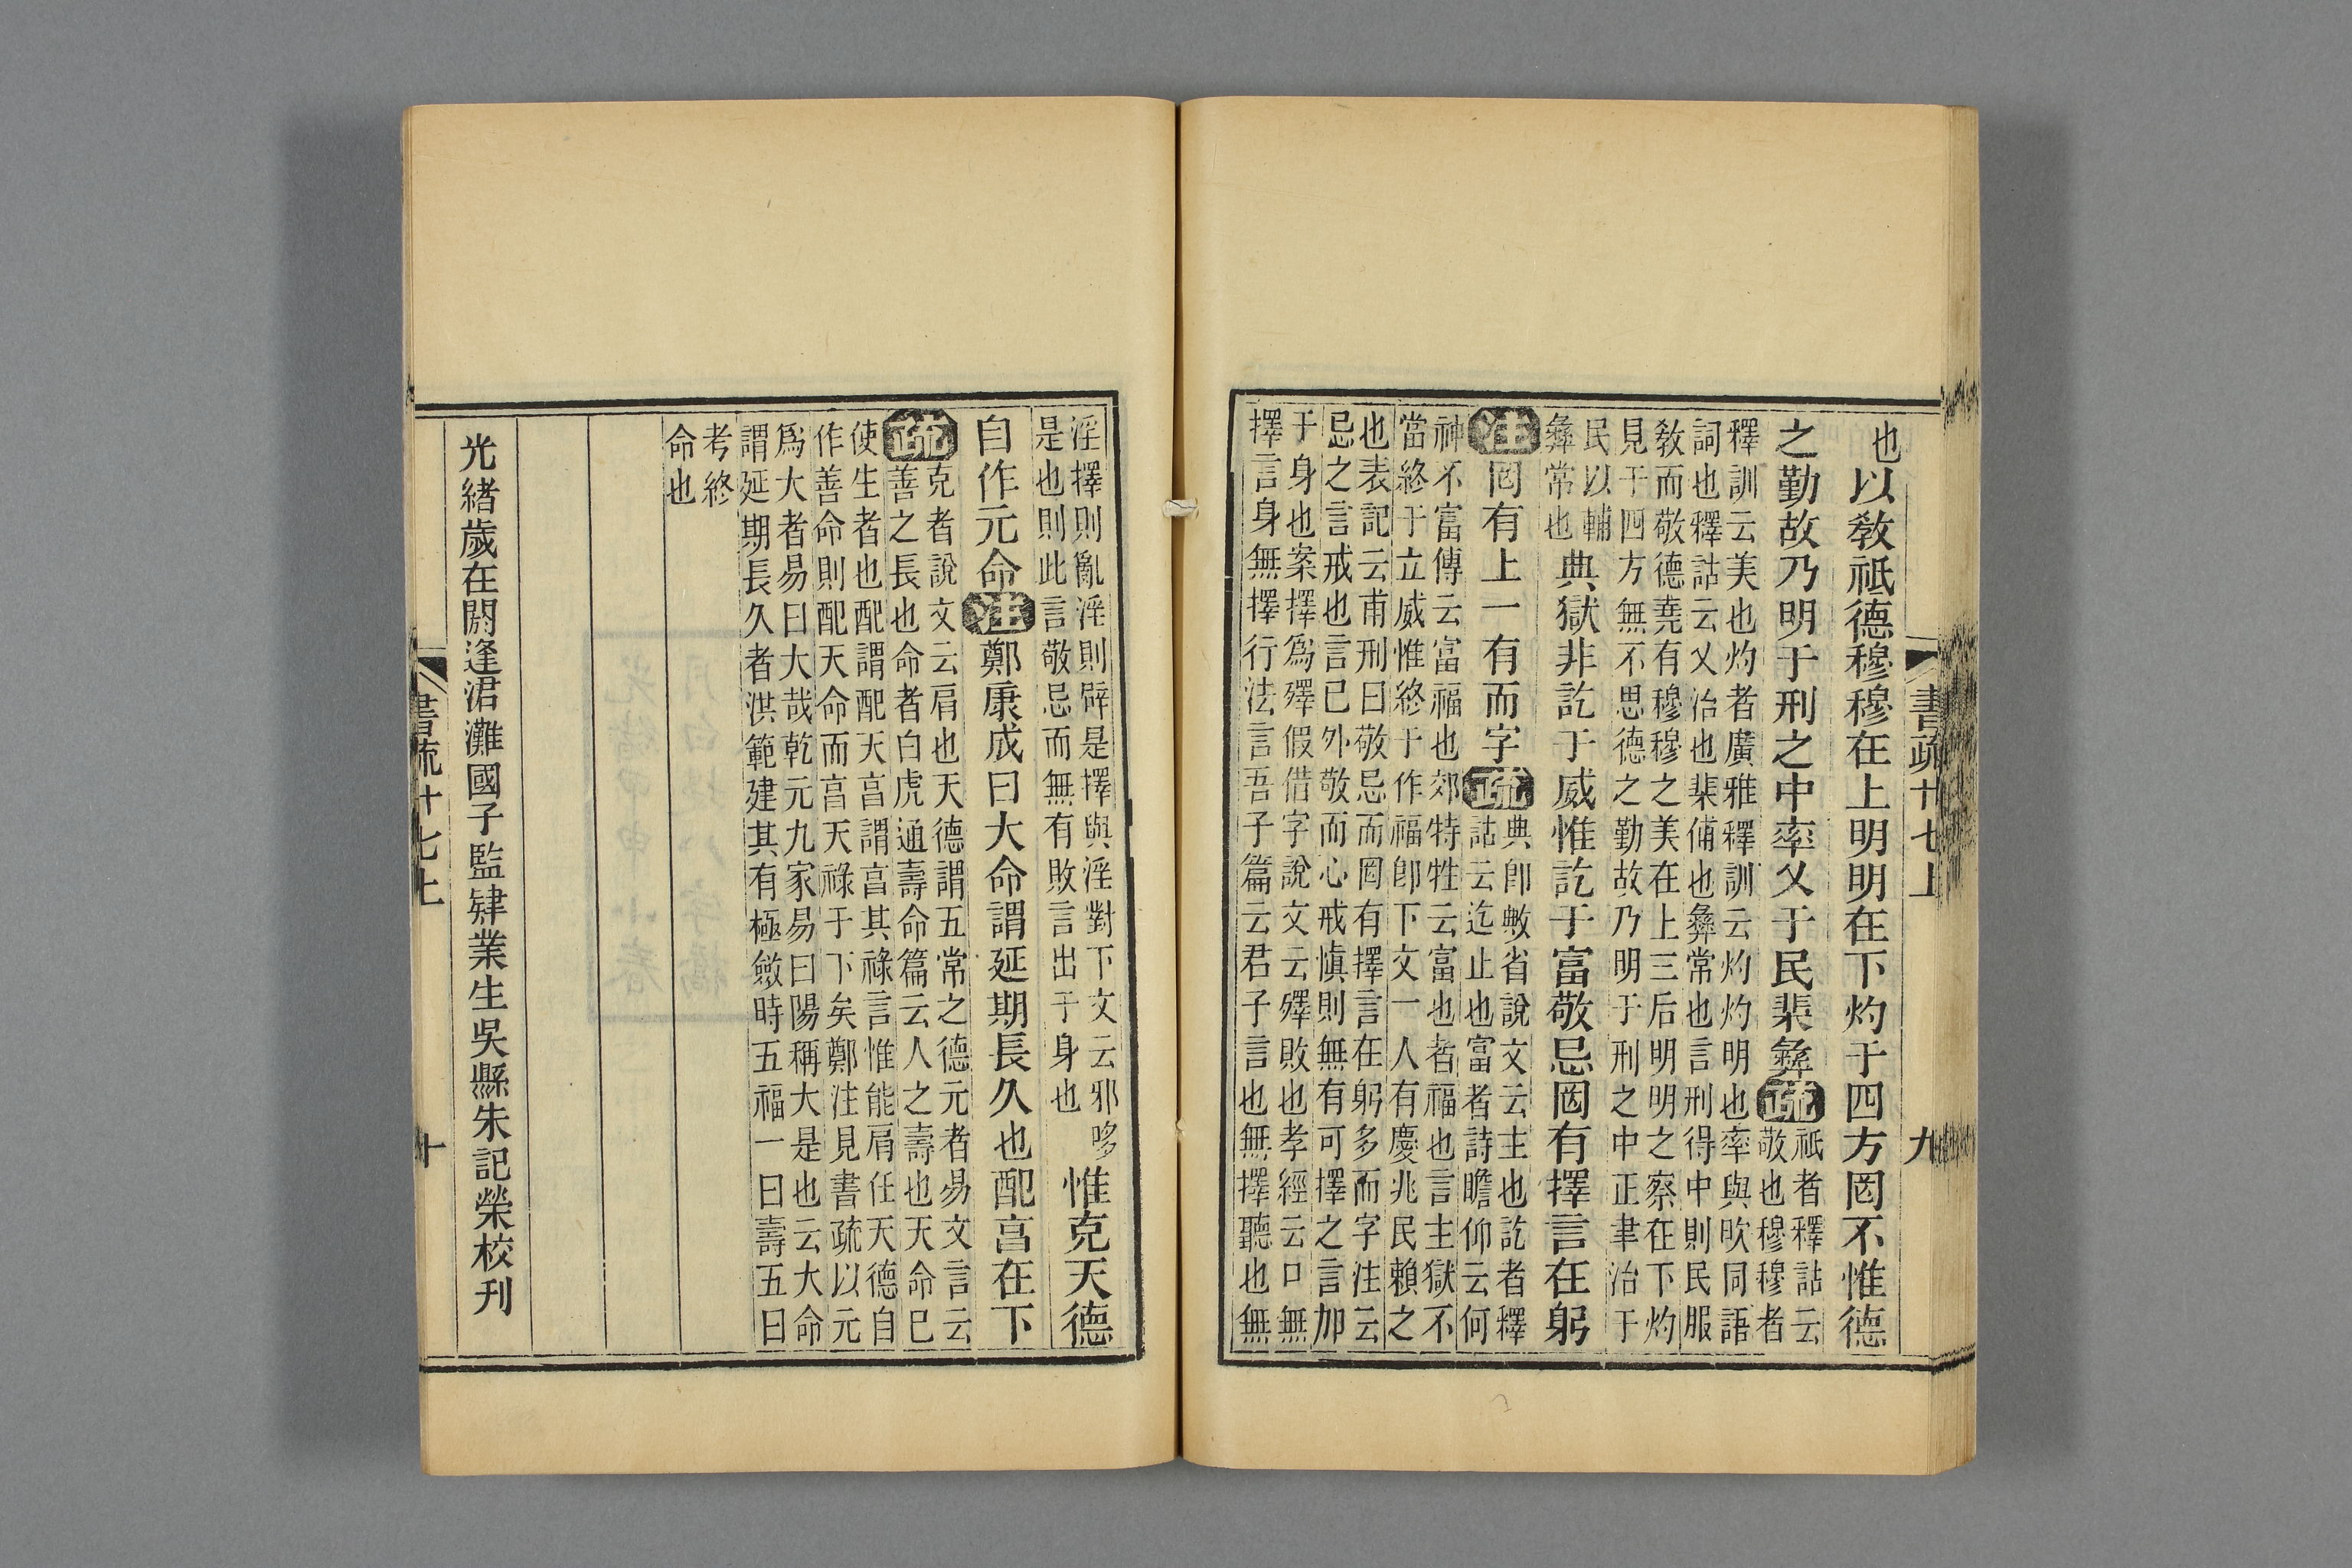 書疏十七上
九
也以敎祗德穆穆在上明明在下灼于四方罔不惟德
之勤故乃明于刑之中率乂于民棐彝疏
祗者釋詁云
敬也穆穆者
釋訓云美也灼者廣雅釋訓云灼灼明也率與欥同語
詞也釋詁云乂治也棐俌也彝常也言刑得中則民服
敎而敬德堯有穆穆之美在上三后明明之察在下灼
見于四方無不思德之勤故乃明于刑之中正聿治于
民以輔
彝常也
典獄非訖于威惟訖于富敬忌罔有擇言在躬
注罔有上一有而字疏
典卽敟省說文云主也訖者釋
詁云迄止也富者詩瞻仰云何
神不富傳云富福也郊特牲云富也者福也言主獄不
當終于立威惟終于作福卽下文一人有慶兆民賴之
也表記云甫刑曰敬忌而罔有擇言在躬多而字注云
忌之言戒也言已外敬而心戒愼則無有可擇之言加
于身也案擇爲殬假借字說文云殬敗也孝經云口無
擇言身無擇行法言吾子篇云君子言也無擇聽也無
淫擇則亂淫則辟是擇與淫對下文云邪哆
是也則此言敬忌而無有敗言出于身也
惟克天德
自作元命注鄭康成曰大命謂延期長久也配亯在下
疏
克者說文云肩也天德謂五常之德元者易文言云
善之長也命者白虎通壽命篇云人之壽也天命已
使生者也配謂配天亯謂亯其祿言惟能肩任天德自
作善命則配天命而亯天祿于下矣鄭注見書疏以元
爲大者易曰大哉乾元九家易曰陽稱大是也云大命
謂延期長久者洪範建其有極斂時五福一曰壽五曰
考終
命也
光緒歲在閼逢涒灘國子監肄業生吳縣朱記榮校刊
書疏十七上
十